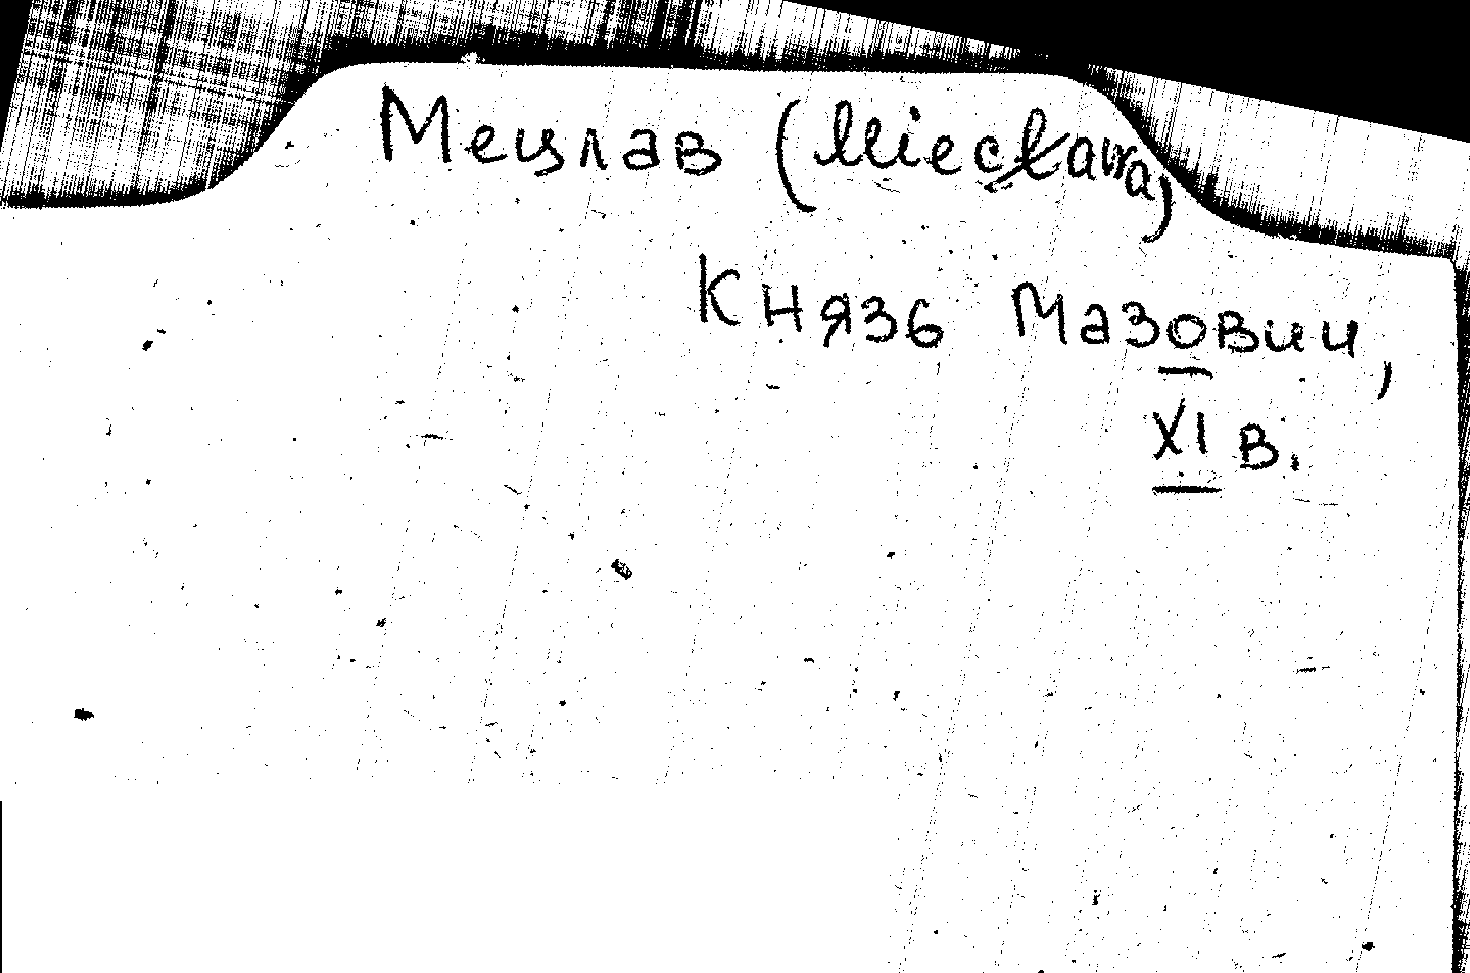 Мецлав (Miecława)
Князь Мазовии,
XI в.